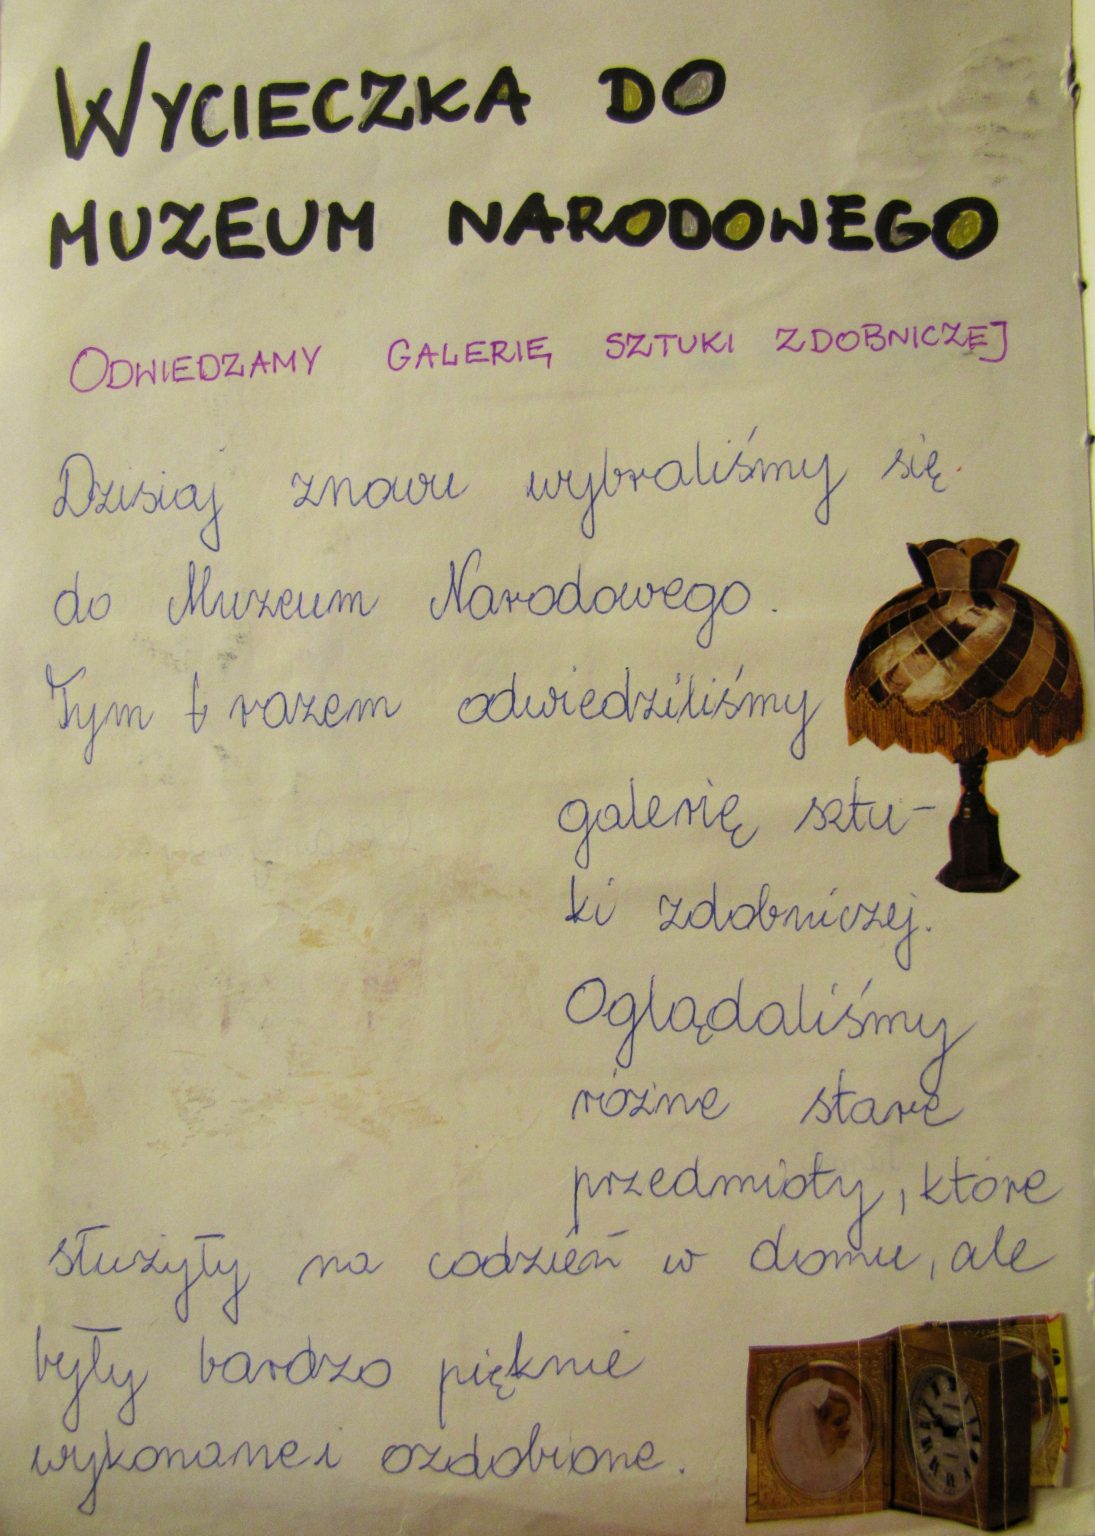 WYCIECZKA DO
MUZEUM NARODOWEGO
ODWIEDZAMY GALERIĘ SZTUKI ZDOBNICZEJ
Dzisiaj znowu wybraliśmy się
do Muzeum Narodowego.
Tym razem odwiedziliśmy
galerię sztu-
ki zdobniczej.
Oglądaliśmy
różne stare
przedmioty, które
służyły na codzień w domu, ale
były bardzo pięknie
wykonane i ozdobione.